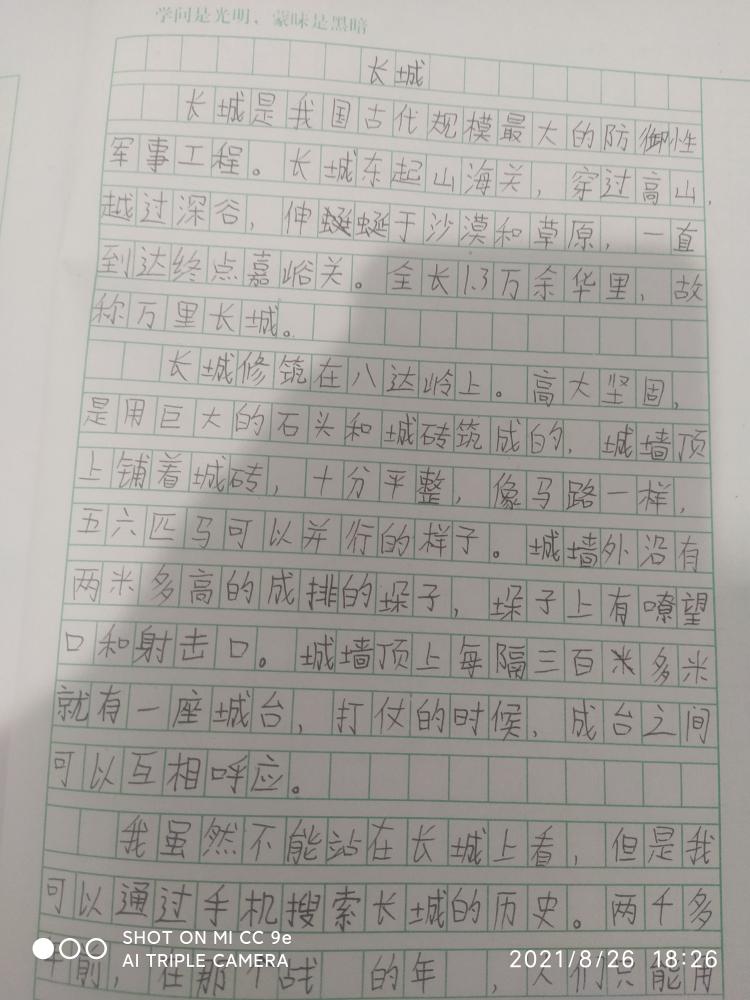 学问是光明、蒙昧是黑暗
长城
长城是我国古代规模最大的防御性
军事工程。长城东起山海关，穿过高山，
越过深谷，伸蜒蜒于沙漠和草原，一直
到达终点嘉峪关。全长1.3万余华里，故
称万里长城。
长城修筑在八达岭上。高大坚固，
是用巨大的石头和城砖筑成的，城墙顶
上铺着城砖，十分平整，像马路一样，
五六匹马可以并行的样子。城墙外沿有
两米多高的成排的垛子，垛子上有嘹望
口和射击口。城墙顶上每隔三百米多米
就有一座城台，打仗的时候，成台之间
可以互相呼应。
我虽然不能站在长城上看，但是我
可以通过手机搜索长城的历史。两千多
年前，在那个战 的年 ，人们只能用
SHOT ON MI CC 9e
AI TRIPLE CAMERA
2021/8/26 18:26